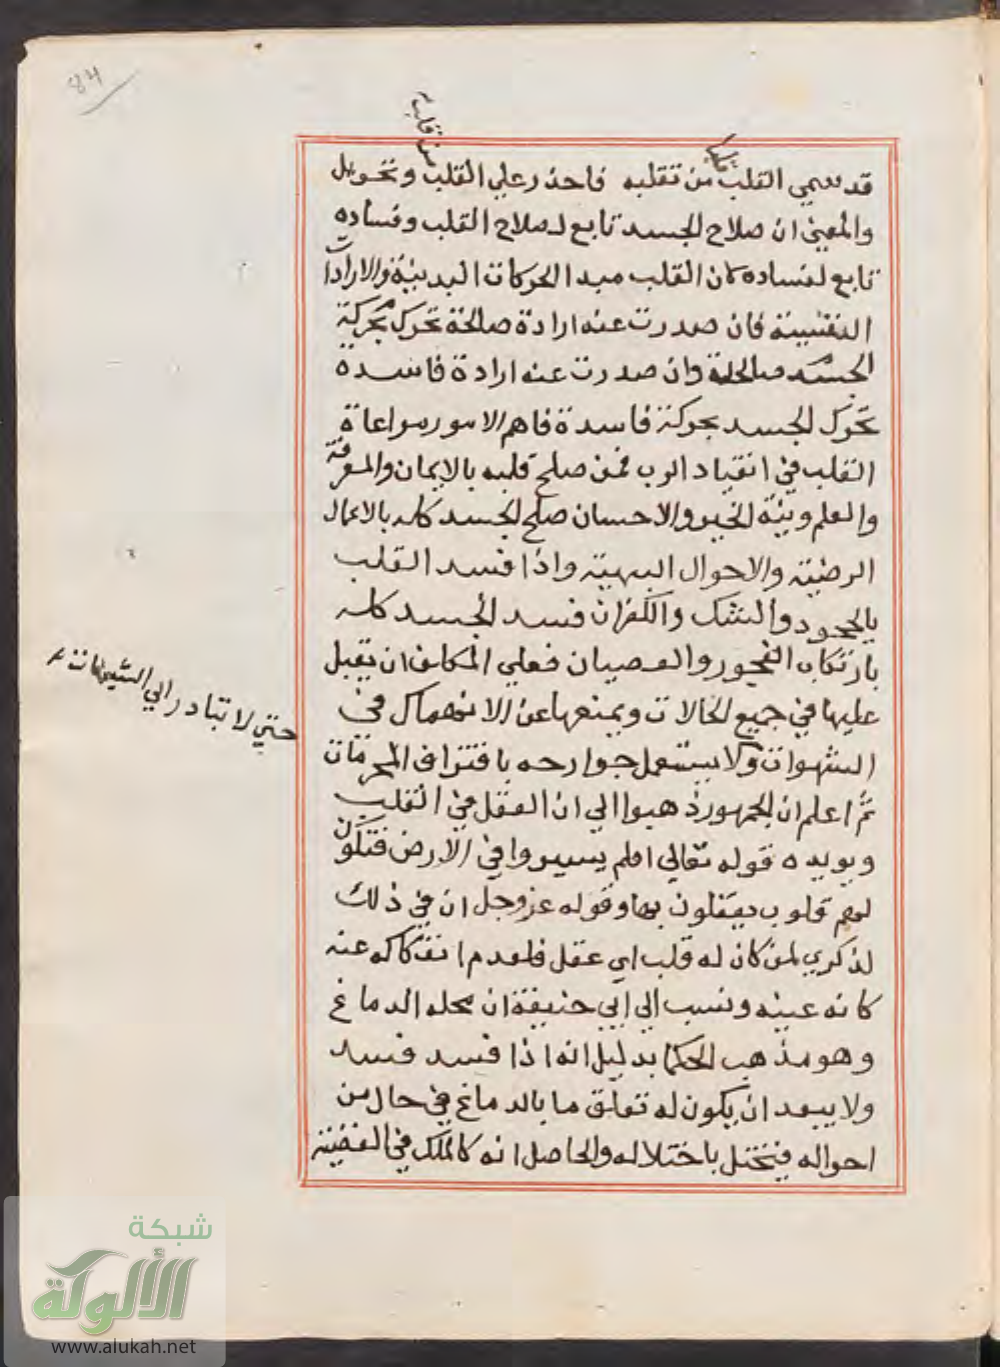 84
قلبا
من قلب
قد سمي القلب من تقلبه فاحذر علي القلب وتحويل
والمعني ان صلاح الجسد تابع لصلاح القلب وفساده
تابع لفساده كان القلب مبدا الحركات البدنية والارادات
النفسية فان صدرت عنه ارادة صالحة تحرك بحركة
الجسد صالحة وان صدرت عنه ارادة فاسدة
تحرك الجسد بحركة فاسدة فاهم الامور مراعاة
القلب في انقياد الرب فمن صلح قلبه بالايمان والمعرفة
والعلم ونية الخير والاحسان صلح الجسد كله بالاعمال
الرضية والاحوال البهية واذا فسد القلب
بالجحود والشك والكفران فسد الجسد كله
بارتكاب الفجور والعصيان فعلي المكلف ان يقبل
عليها في جميع الحالات ويمنعها عن الانهماك في
الشهوات ولا يستعمل جوارحه باقتراف المحرمات
حتي لا تبادر الي الشبهات
ثم اعلم ان الجمهور ذهبوا الي ان العقل في القلب
ويويده قوله تعالي افلم يسيروا في الارض فتكون
لهم قلوب يعقلون بها وقوله عز وجل ان في ذلك
لذكري لمن كان له قلب اي عقل فلعدم انفكاكه عنه
كانه عينه ونسب الي ابي حنيفة ان محله الدماغ
وهو مذهب الحكما بدليل انه اذا فسد فسد
ولا يبعد ان يكون له تعلق ما بالدماغ في حال من
احواله فيختل باختلاله والحاصل انه كالملك في
شبكة
الألوكة
www.alukah.net